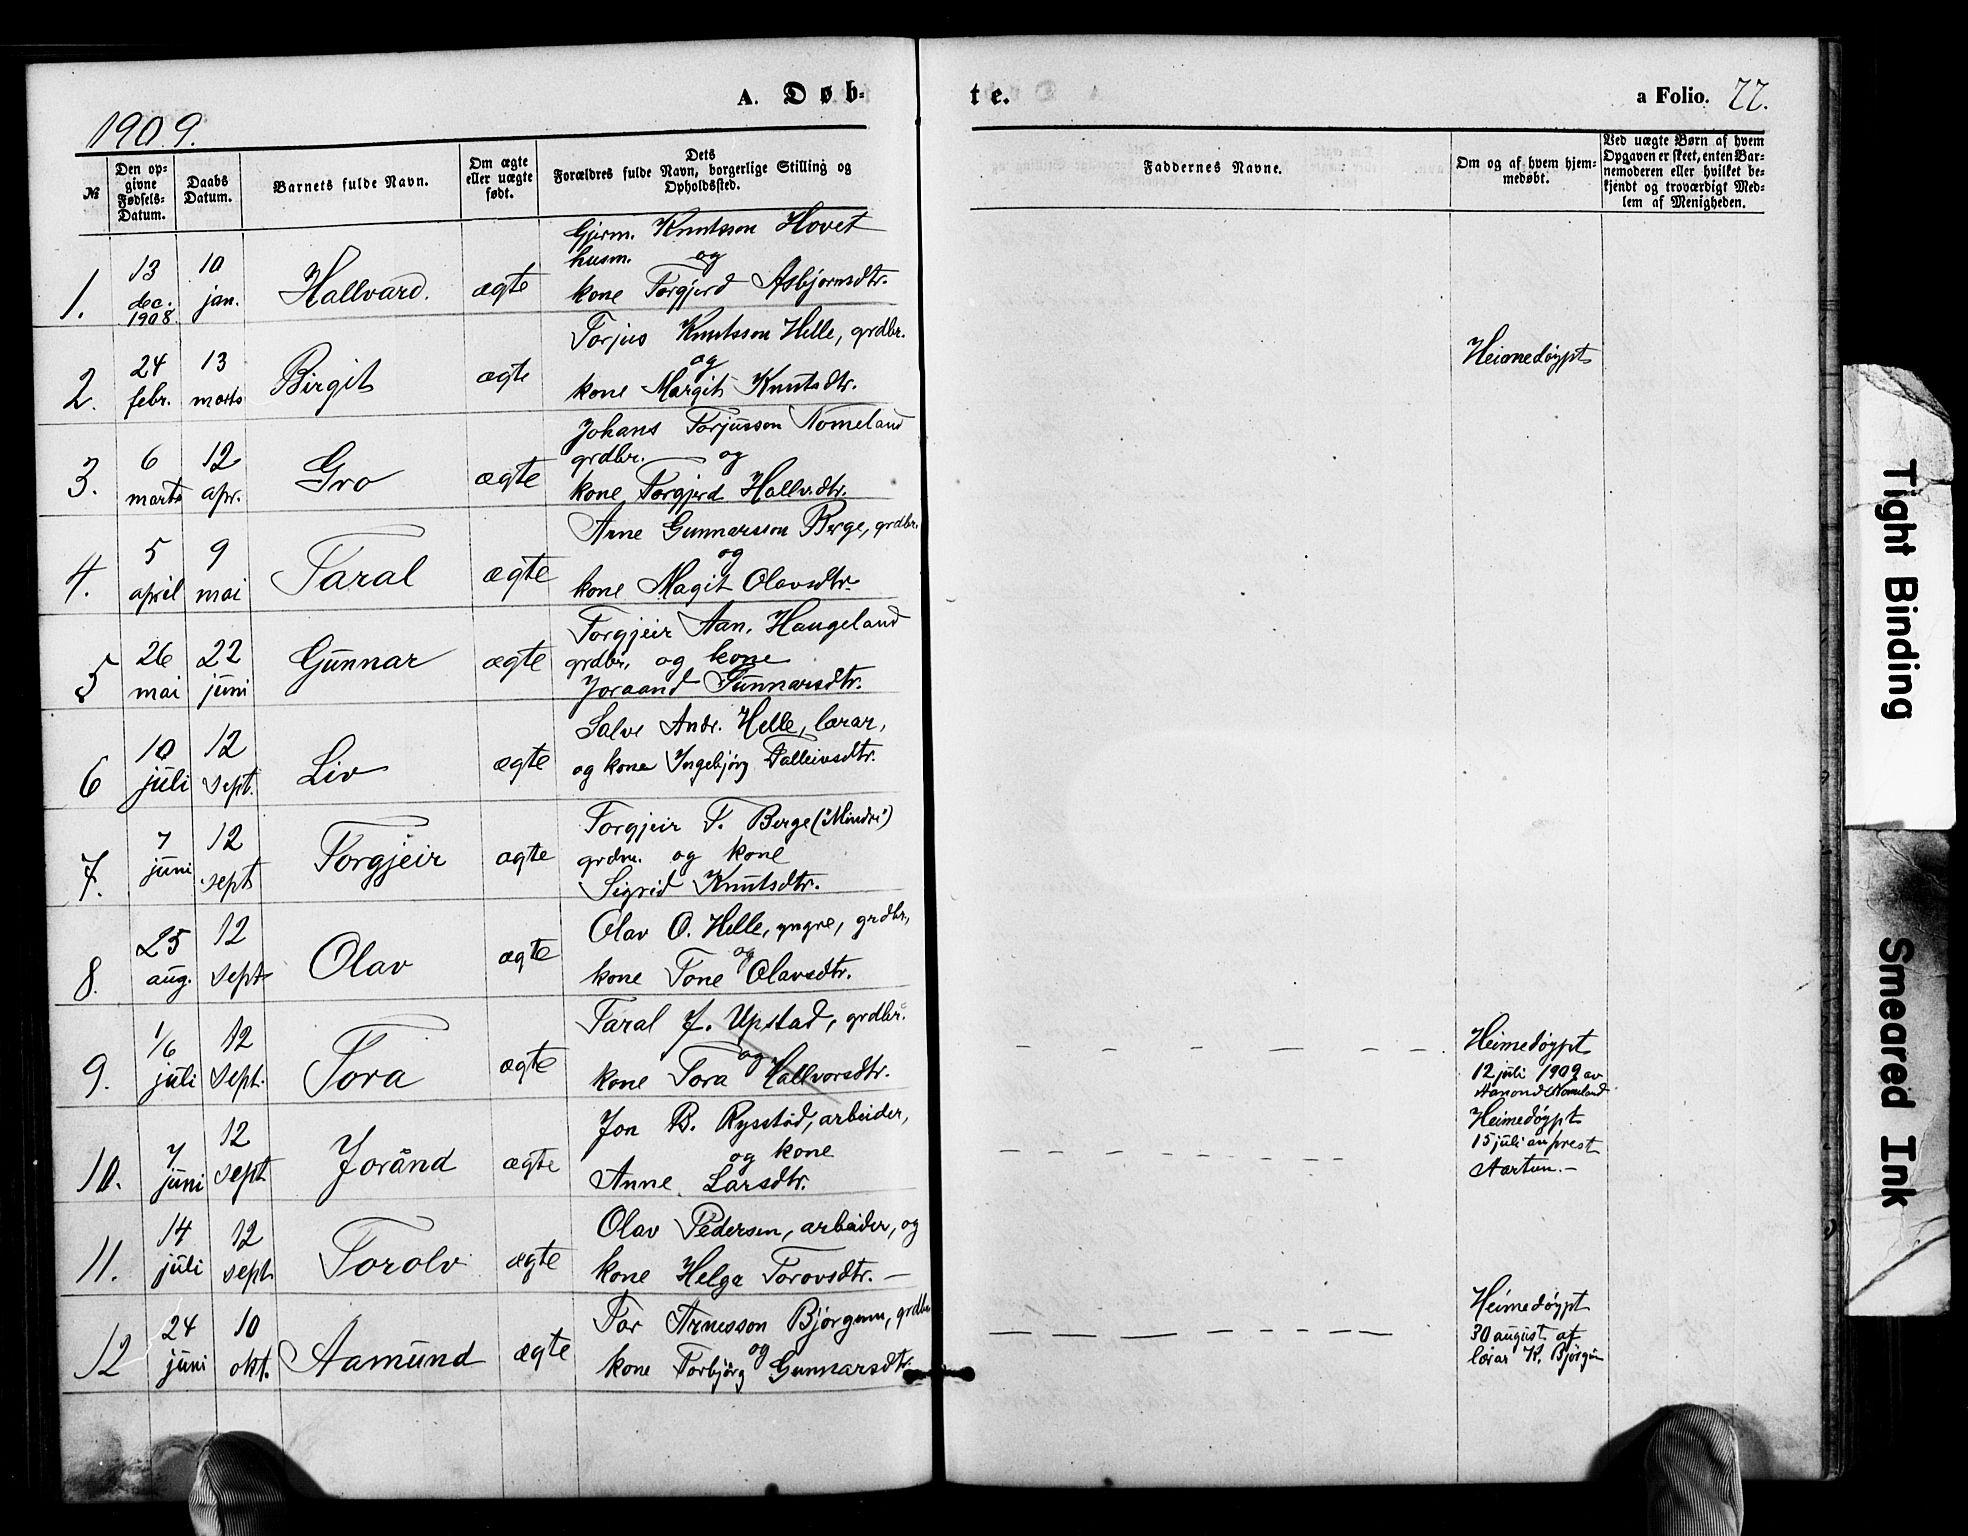 1909.
A. Døb-
te.
a Folio. 77.
№
Den op-
givne
Fødsels-
Datum.
Daabs
Datum.
Barnets fulde Navn.
Om ægte
eller uægte
født.
Dets
Forældres fulde Navn, borgerlige Stilling og
Opholdssted.
Faddernes Navne.
Om og af hvem hjem-
medøbt.
Ved uægte Børn af hvem
Opgaven er skeet, enten Bar-
nemoderen eller hvilket be-
kjendt og troværdigt Med-
lem af Menigheden.
1.
13
dec.
1908
10
jan.
Hallvard.
ægte
Gjerm. Knutsson Hovet
husm. og
kone Torgjerd Asbjørnsdtr.
2.
24
febr.
13
marts
Birgit
ægte
Torjus Knutsson Helle, grdbr.
og
kone Margit Knutsdtr.
Heimedøypt
3.
6
marts
12
apr.
Gro
ægte
Johans Torjusson Nomeland
grdbr. og
kone Torgjerd Hallv.dtr.
4.
5
april
9
mai
Taral
ægte
Arne Gunnarsson Berge, grdbr.
og
kone Magit Olavsdtr.
5
26
mai
22
juni
Gunnar
ægte
Torgjeir Aan. Haugeland
grdbr. og kone
Joraand Gunnarsdtr.
6
10
juli
12
sept.
Liv
ægte
Salve Andr. Helle, lærar,
og kone Ingebjørg Talleivsdtr.
7.
7
juni
12
sept
Torgjeir
ægte
Torgjeir T. Berge ("Mindre")
grdm. og kone
Sigrid Knutsdtr.
8.
25
aug.
12
sept
Olav
ægte
Olav O. Helle, yngre, grdbr.,
og
kone Tone Olavsdtr.
9.
1/6
juli
12
sept.
Tora
ægte
Taral J. Upstad, grdbr.
og
kone Tora Hallvorsdtr.
Heimedøypt
12 juli 1909 av
Aanond Nomeland
10.
7
juni
12
sept
Joránd
ægte
Jon B. Rysstad, arbeider,
og kone
Anne Larsdtr.
Heimedøypt
15 juli av prest
Aartun. –
11.
14
juli
12
sept
Torolv
ægte
Olav Pedersen, arbeider, og
kone Helga Torovsdtr. –
12
24
juni
10
okt.
Aamund
ægte
Tor Arnesson Bjørgum, grdbr
og
kone Torbjørg Gunnarsdtr.
Heimedøypt
30 august af
lærar K. Bjørgum
Tight Binding
Smeared Ink